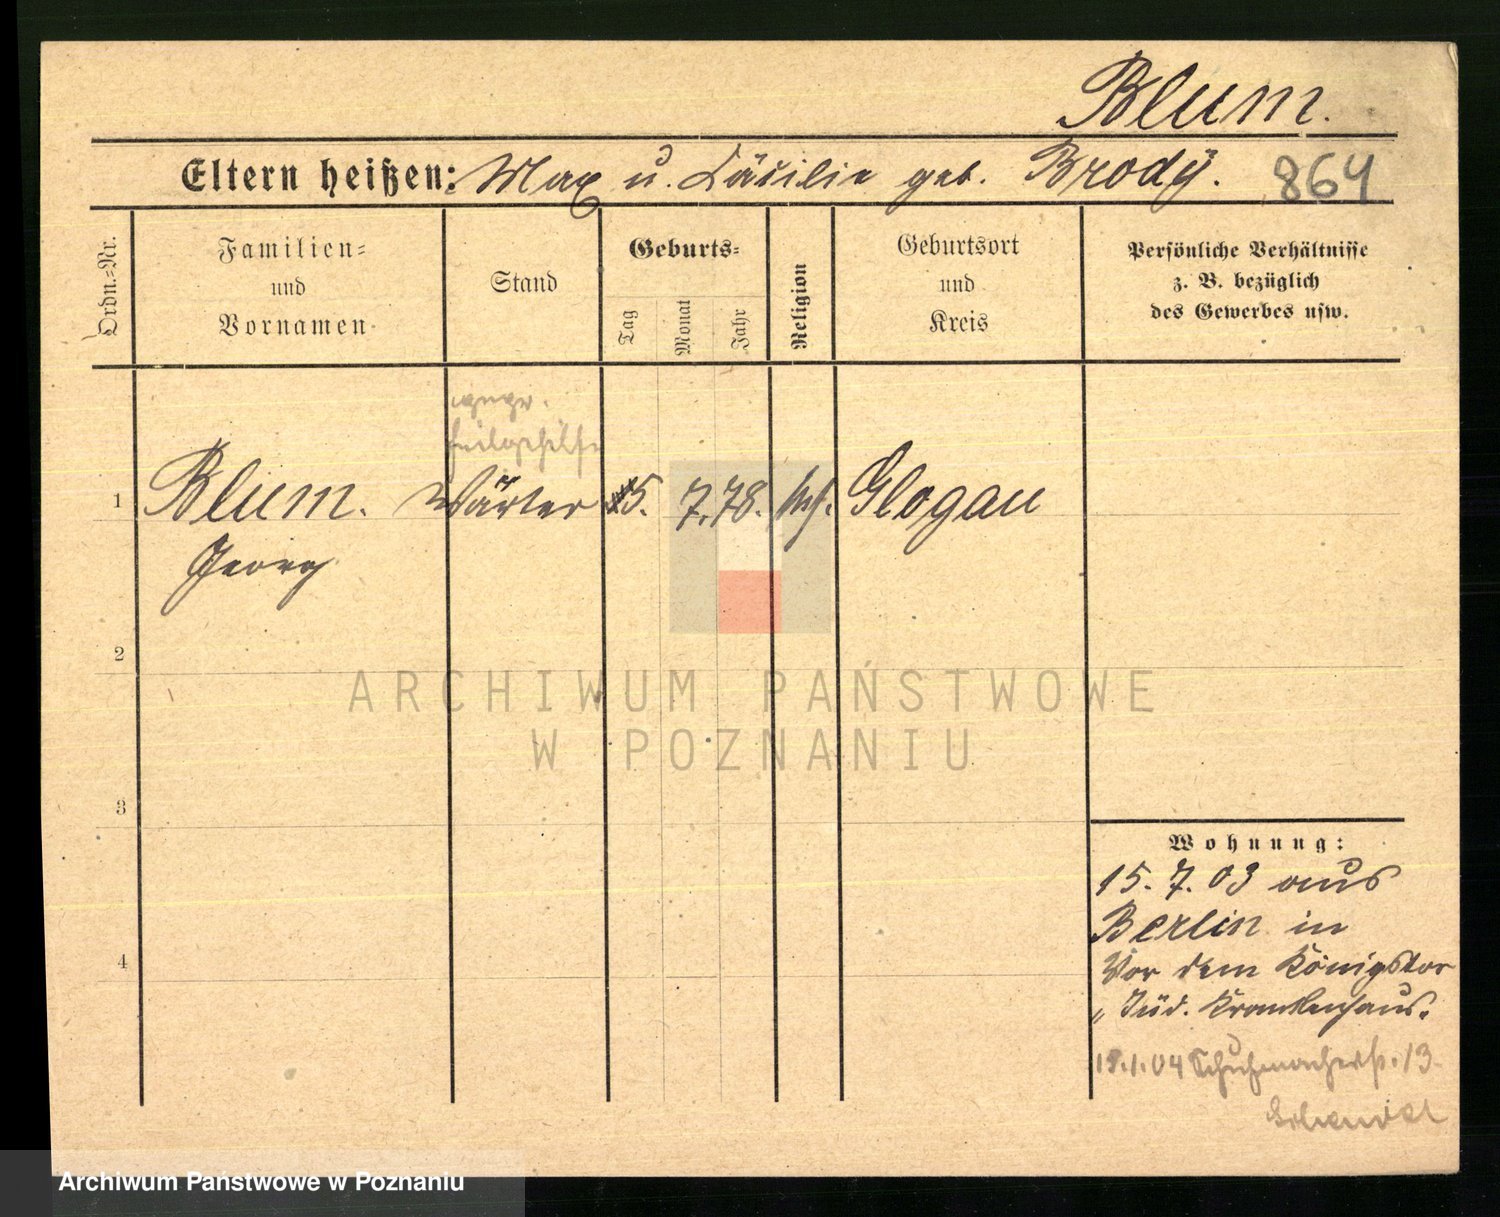 Blum.
Eltern heißen: Max u. Cäcilie geb. Brody. 864
Ordn.=Nr.
Familien=
und
Vornamen
Stand
Geburts=
Tag
Monat
Jahr
Religion
Geburtsort
und
Kreis
Persönliche Verhältnisse
z. B. bezüglich
des Gewerbes usw.
gepr.
Heilgehilfe
1 Blum. Wärter 5. 7. 78. Glogau
Georg
2
3
4
Wohnung:
15. 7. 03 aus
Berlin in
Vor dem Königstor
„ Jüd. Krankenhaus.
18.1.04 Schuhmacherstr. 13
ARCHIWUM PAŃSTWOWE
W POZNANIU
Archiwum Państwowe w Poznaniu